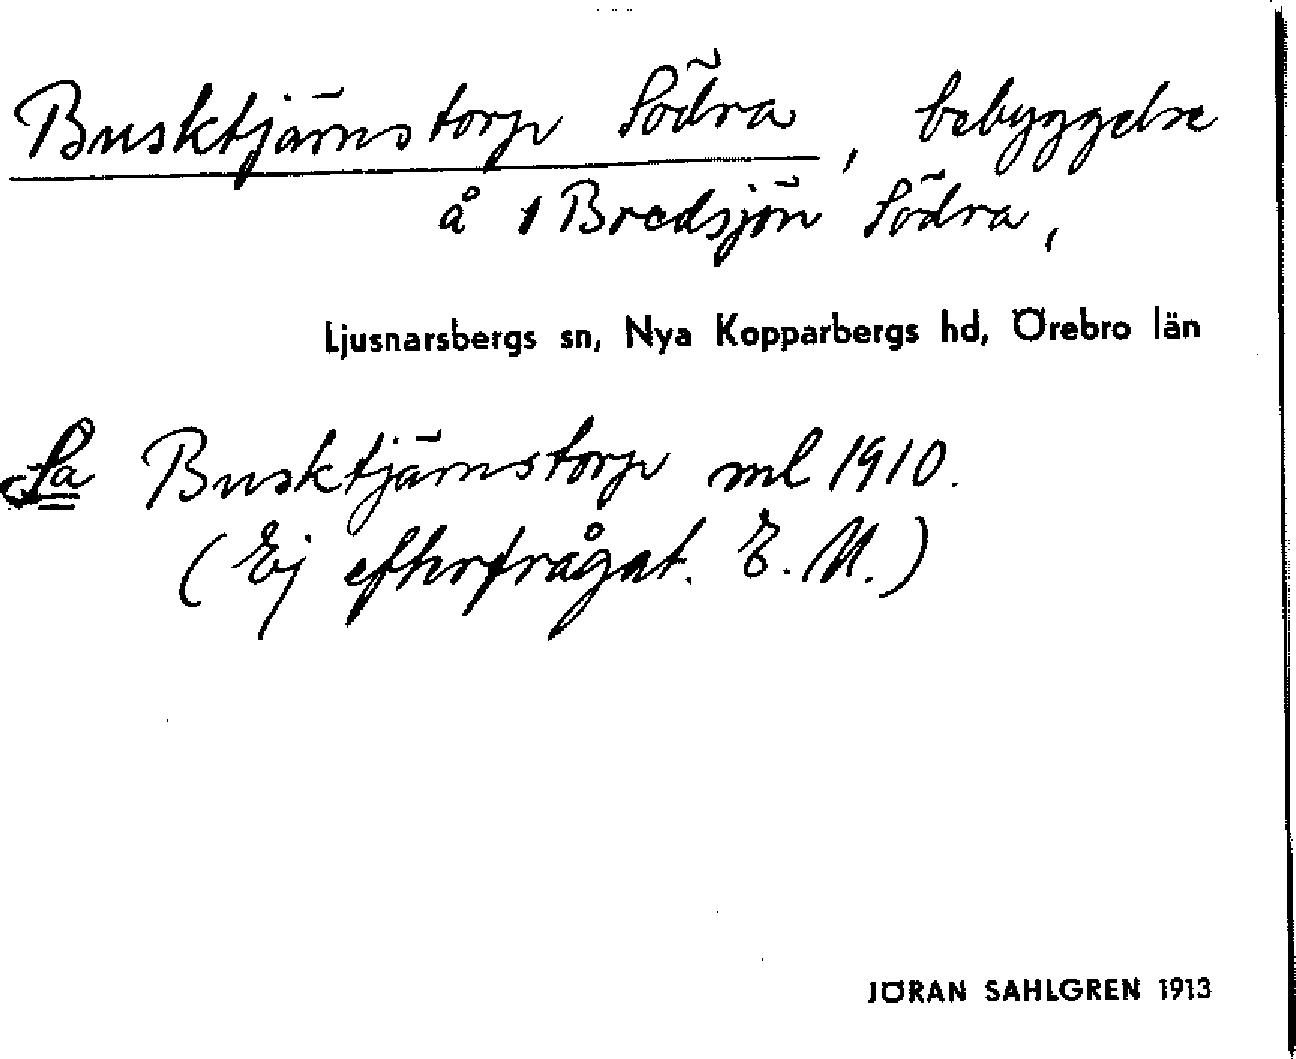 Busktjärnstorp Södra, bebyggelse
å 1 Bredsjön Södra,
Ljusnarsbergs sn, Nya Kopparbergs hd, Örebro län
Sa Busktjärnstorp ml 1910.
(Ej efterfrågat. E. M.)
JÖRAN SAHLGREN 1913